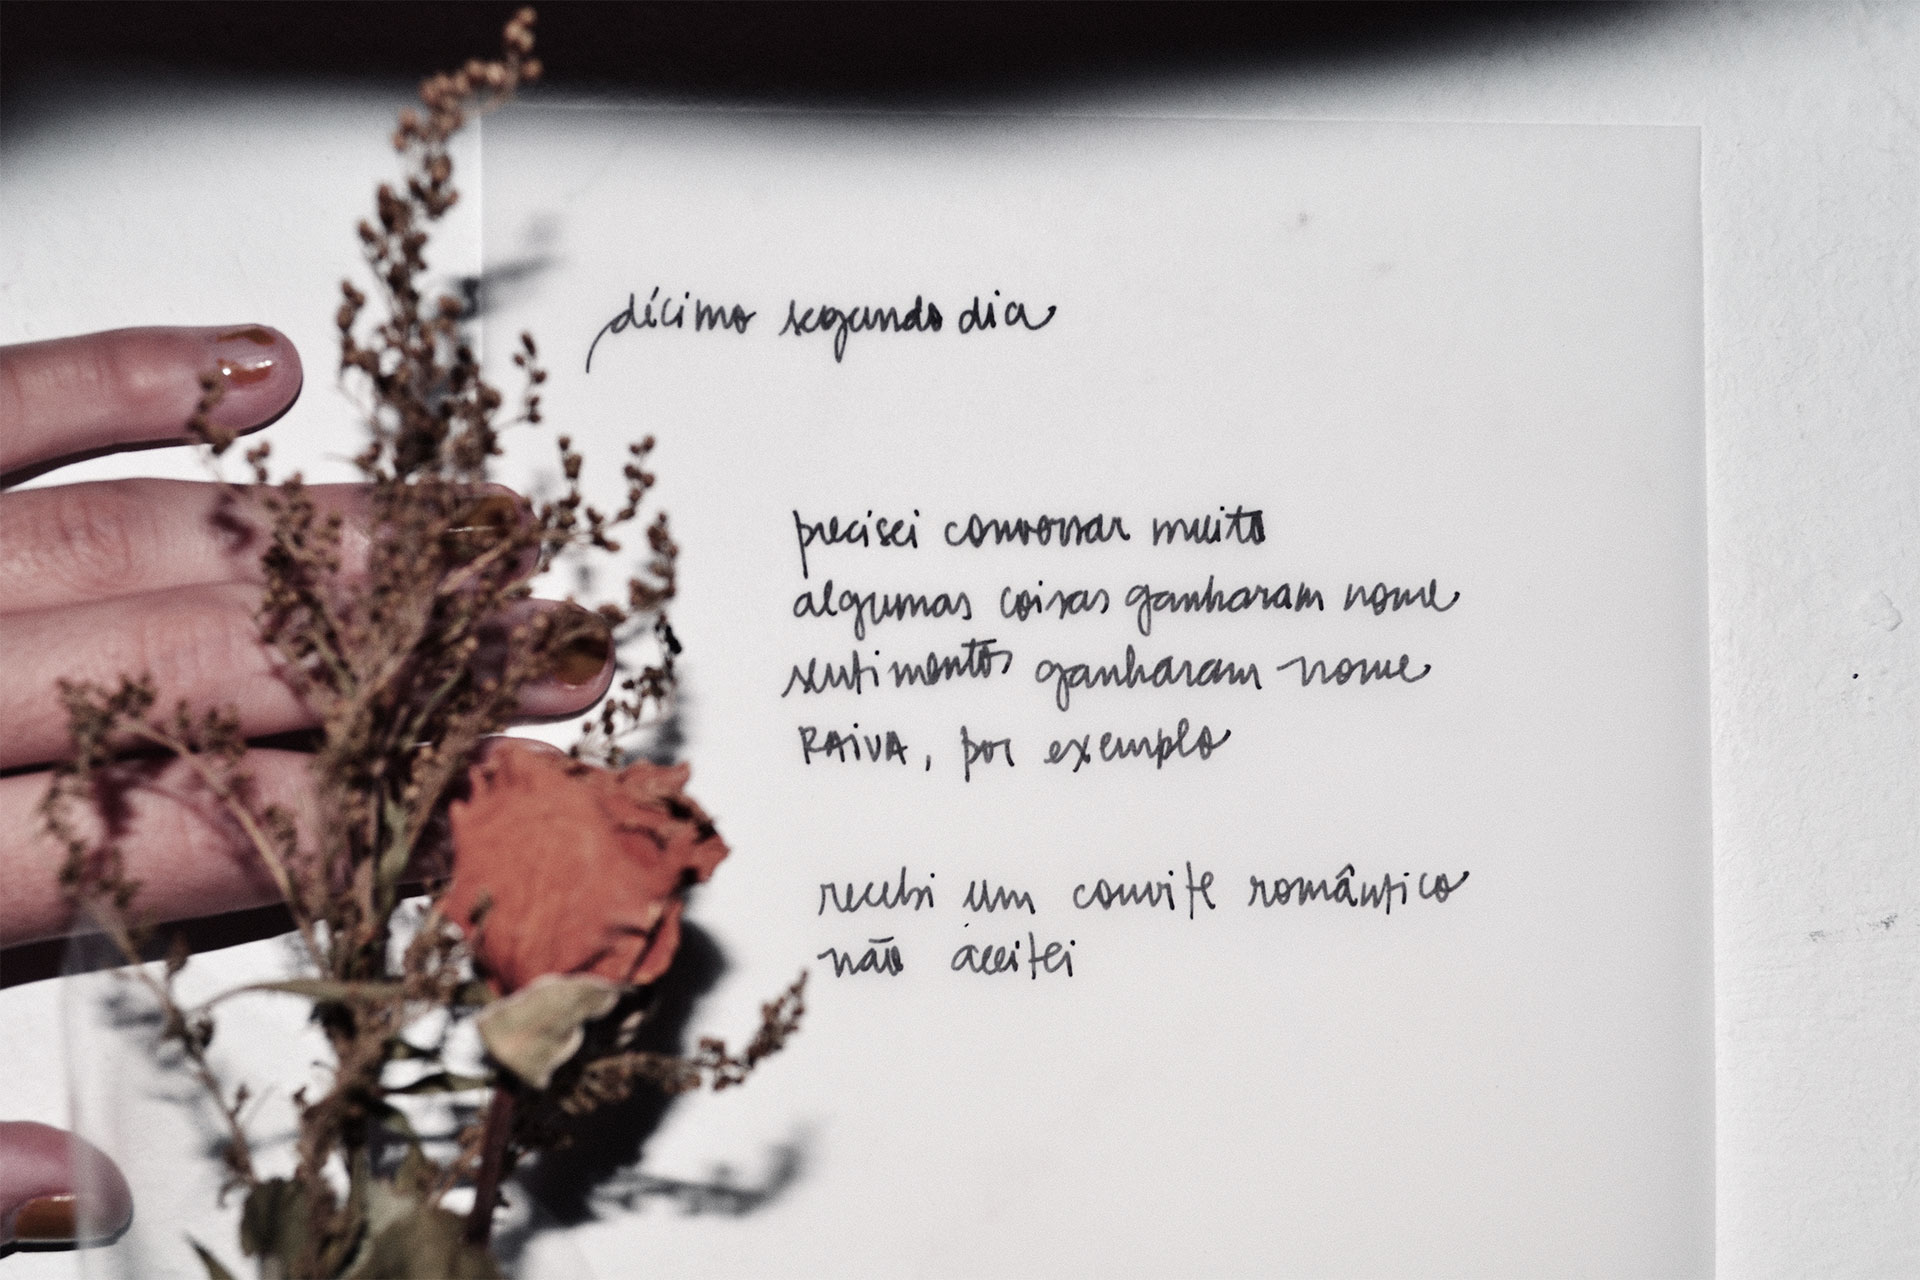 décimo segundo dia
precisei conversar muito
algumas coisas ganharam nome
sentimentos ganharam nome
RAiVA, por exemplo
recebi um convite romântico
não aceitei